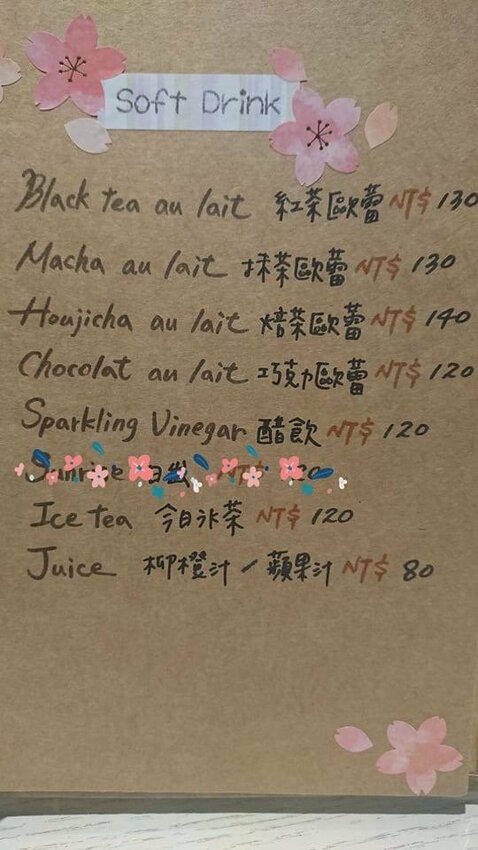 Soft Drink
Black tea au lait 紅茶歐蕾 NT$ 130
Macha au lait 抹茶歐蕾 NT$ 130
Houjicha au lait 焙茶歐蕾 NT$ 140
Chocolat au lait 巧克力歐蕾 NT$ 120
Sparkling Vinegar 醋飲 NT$ 120
Sunrise 日出 NT$
Ice tea 今日冰茶 NT$ 120
Juice 柳橙汁/蘋果汁 NT$ 80